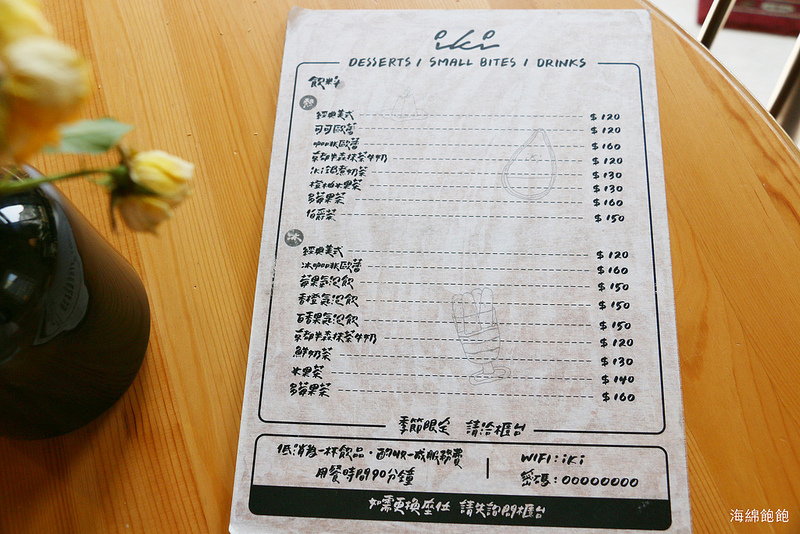 iki
DESSERTS / SMALL BITES / DRINKS
飲料
熱
經典美式 $120
可可歐蕾 $120
咖啡歐蕾 $160
京都半森抹茶牛奶 $120
iki鍋煮奶茶 $130
橙柚水果茶 $130
多莓果茶 $160
伯爵茶 $150
冰
經典美式 $120
冰咖啡歐蕾 $160
莓果氣泡飲 $150
香橙氣泡飲 $150
百香果氣泡飲 $150
京都半森抹茶牛奶 $120
鮮奶茶 $130
水果茶 $140
多莓果茶 $160
季節限定 請洽櫃台
低消為一杯飲品・酌收一成服務費 WIFI: iki
用餐時間90分鐘 密碼: 00000000
如需更換座位 請先詢問櫃台
海綿飽飽